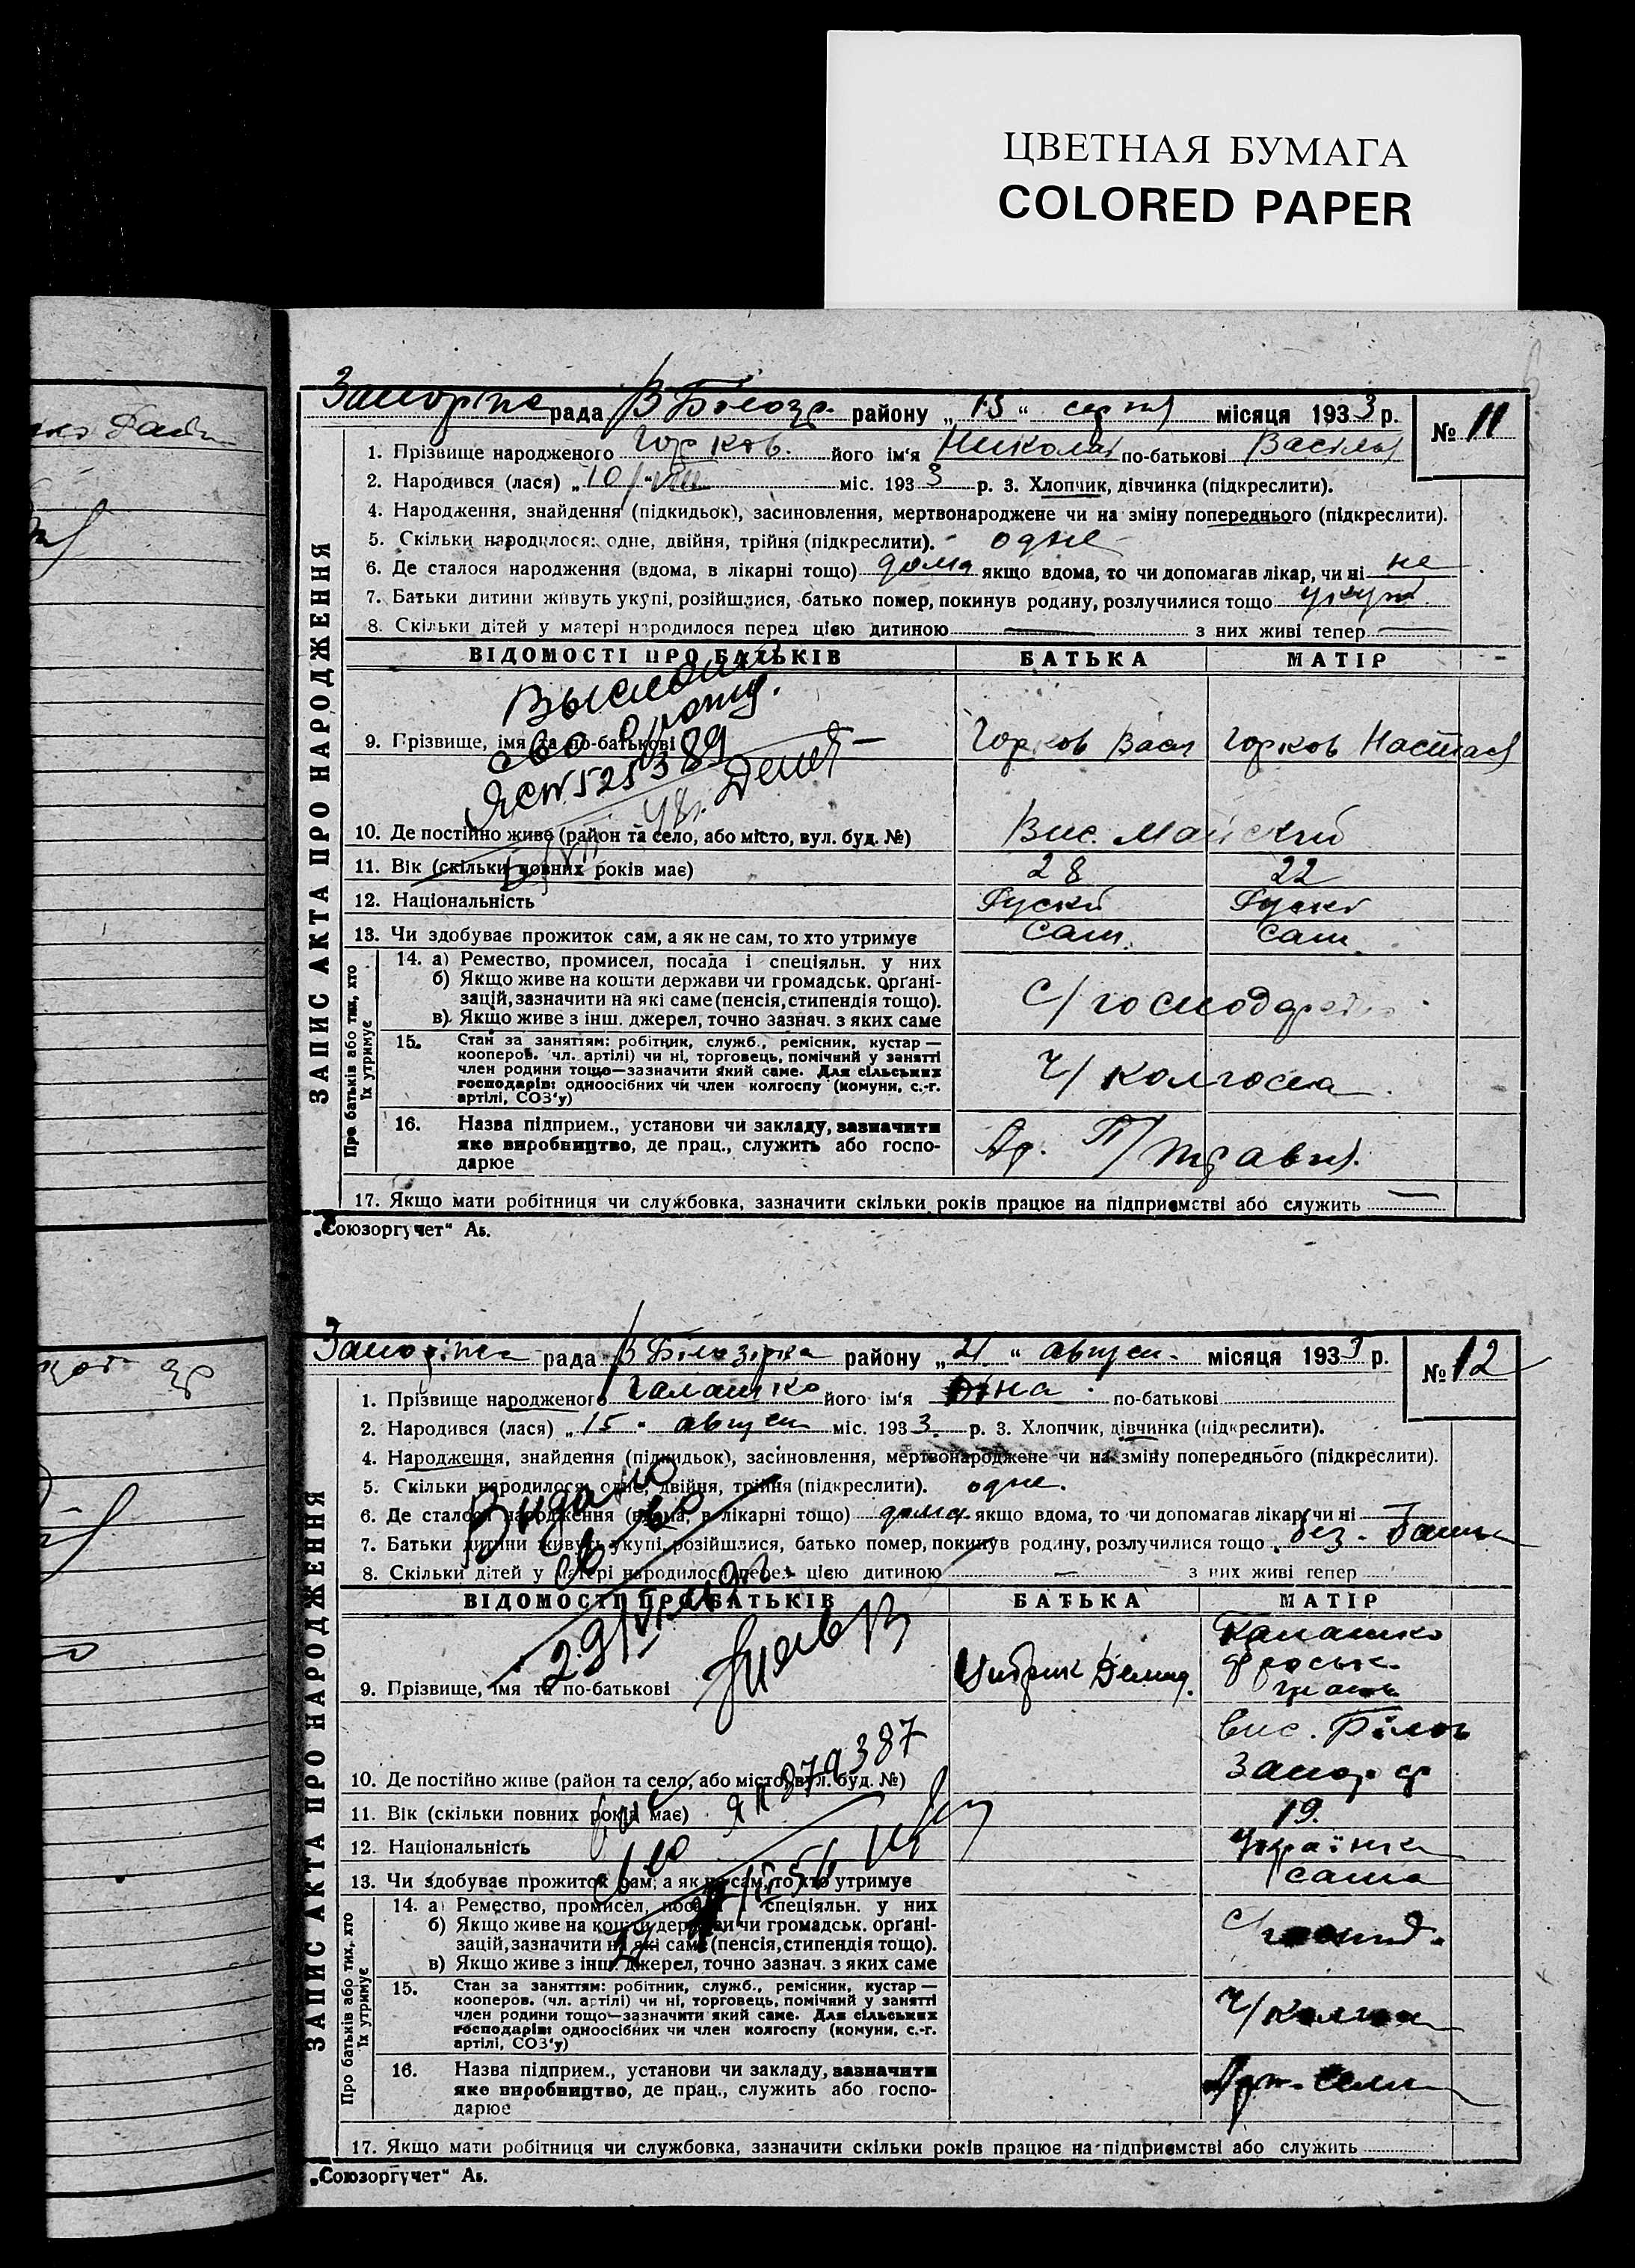 ЦВЕТНАЯ БУМАГА
COLORED PAPER
рада В Білозр. району „13“ серпня місяця 1933 р. № 11
1. Прізвище народженого Горков. його ім‘я Николай по-батькові Васіль
2. Народився (лася) „10/“ VIII міс. 1933 р. 3. Хлопчик, дівчинка (підкреслити).
4. Народження, знайдення (підкидьок), засиновлення, мертвонароджене чи на зміну попереднього (підкреслити).
5. Скільки народилося: одне, двійня, трійня (підкреслити). одне
6. Де сталося народження (вдома, в лікарні тощо) дома якщо вдома, то чи допомагав лікар, чи ні не
7. Батьки дитини живуть укупі, розійшлися, батько помер, покинув родину, розлучилися тощо укупі.
8. Скільки дітей у матері народилося перед цією дитиною — з них живі тепер —
ВІДОМОСТІ ПРО БАТЬКІВ БАТЬКА МАТІР
9. Прізвище, імя та по-батькові Горков Васл Горков Настася
525389
10. Де постійно живе (район та село, або місто, вул. буд. №) Вис. Майский
11. Вік (скільки повних років має) 28 22
12. Національність Руски Руски
13. Чи здобуває прожиток сам, а як не сам, то хто утримує сам. сам.
ЗАПИС АКТА ПРО НАРОДЖЕННЯ
Про батьків або тих, хто їх утримує
14. а) Ремество, промисел, посада і спеціяльн. у них
б) Якщо живе на кошти держави чи громадськ. орґані-
зацій, зазначити на які саме (пенсія, стипендія тощо).
в) Якщо живе з інш. джерел, точно зазнач. з яких саме
С/господар
15. Стан за заняттям: робітник, служб., ремісник, кустар —
кооперов. (чл. артілі) чи ні, торговець, помічний у занятті
член родини тощо—зазначити який саме. Для сільських
господарів: одноосібних чи член колгоспу (комуни, с.-г.
артілі, СОЗ‘у)
Ч/ колгоспа
16. Назва підприєм., установи чи закладу, зазначити
яке виробництво, де прац., служить або госпо-
дарює
Ар. П/травня.
17. Якщо мати робітниця чи службовка, зазначити скільки років працює на підприємстві або служить —
„Союзоргучет“ Аь.
рада В Білозірка району „21“ август. місяця 1933 р. № 12
1. Прізвище народженого Галашко його ім‘я по-батькові
2. Народився (лася) „15“ август міс. 1933 р. 3. Хлопчик, дівчинка (підкреслити).
4. Народження, знайдення (підкидьок), засиновлення, мертвонароджене чи на зміну попереднього (підкреслити).
5. Скільки народилося: одне, двійня, трійня (підкреслити). одне.
6. Де сталося народження (вдома, в лікарні тощо) дома якщо вдома, то чи допомагав лікар, чи ні
7. Батьки дитини живуть укупі, розійшлися, батько помер, покинув родину, розлучилися тощо без-Батьк
8. Скільки дітей у матері народилося перед цією дитиною — з них живі тепер
Видано
ВІДОМОСТІ ПРО БАТЬКІВ БАТЬКА МАТІР
9. Прізвище, імя та по-батькові
вис. Білоз
10. Де постійно живе (район та село, або місто, вул. буд. №)
879387
11. Вік (скільки повних років має) 19.
12. Національність Українка
13. Чи здобуває прожиток сам, а як не сам, то хто утримує сама
ЗАПИС АКТА ПРО НАРОДЖЕННЯ
Про батьків або тих, хто їх утримує
14. а) Ремество, промисел, посада і спеціяльн. у них
б) Якщо живе на кошти держави чи громадськ. орґані-
зацій, зазначити на які саме (пенсія, стипендія тощо).
в) Якщо живе з інш. джерел, точно зазнач. з яких саме
15. Стан за заняттям: робітник, служб., ремісник, кустар —
кооперов. (чл. артілі) чи ні, торговець, помічний у занятті
член родини тощо—зазначити який саме. Для сільських
господарів: одноосібних чи член колгоспу (комуни, с.-г.
артілі, СОЗ‘у)
16. Назва підприєм., установи чи закладу, зазначити
яке виробництво, де прац., служить або госпо-
дарює
17. Якщо мати робітниця чи службовка, зазначити скільки років працює на підприємстві або служить
„Союзоргучет“ Аь.